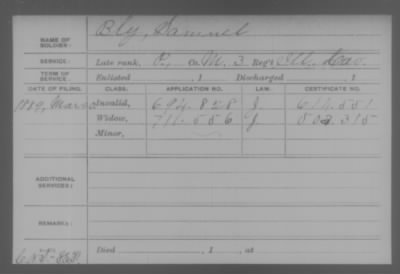 NAME OF SOLDIER: Bly, Samuel
SERVICE: Late rank, P, Co. M. 3 Reg't Ill. Cav.
TERM OF SERVICE: Enlisted , 1 Discharged , 1
DATE OF FILING. CLASS. APPLICATION NO. LAW. CERTIFICATE NO.
1889, Mar Invalid, 694.828 J. 614.551
Widow, 711.556 J 508.315
Minor,
ADDITIONAL SERVICES:
REMARKS:
Died , 1 , at